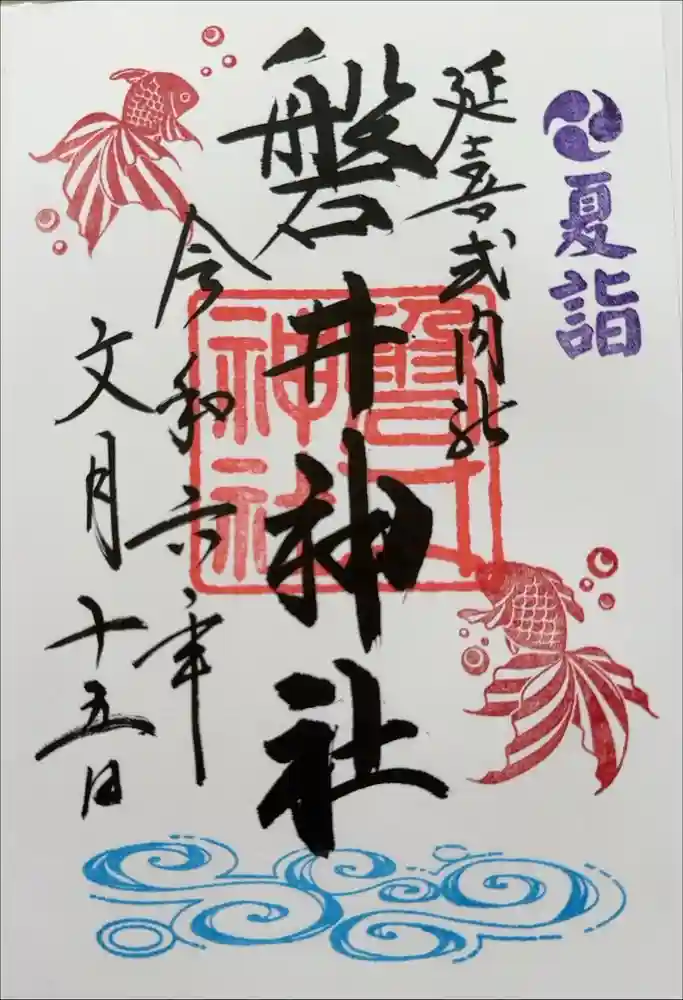 夏詣
延喜式内社
磐井神社
磐井神社
令和六年
文月十五日